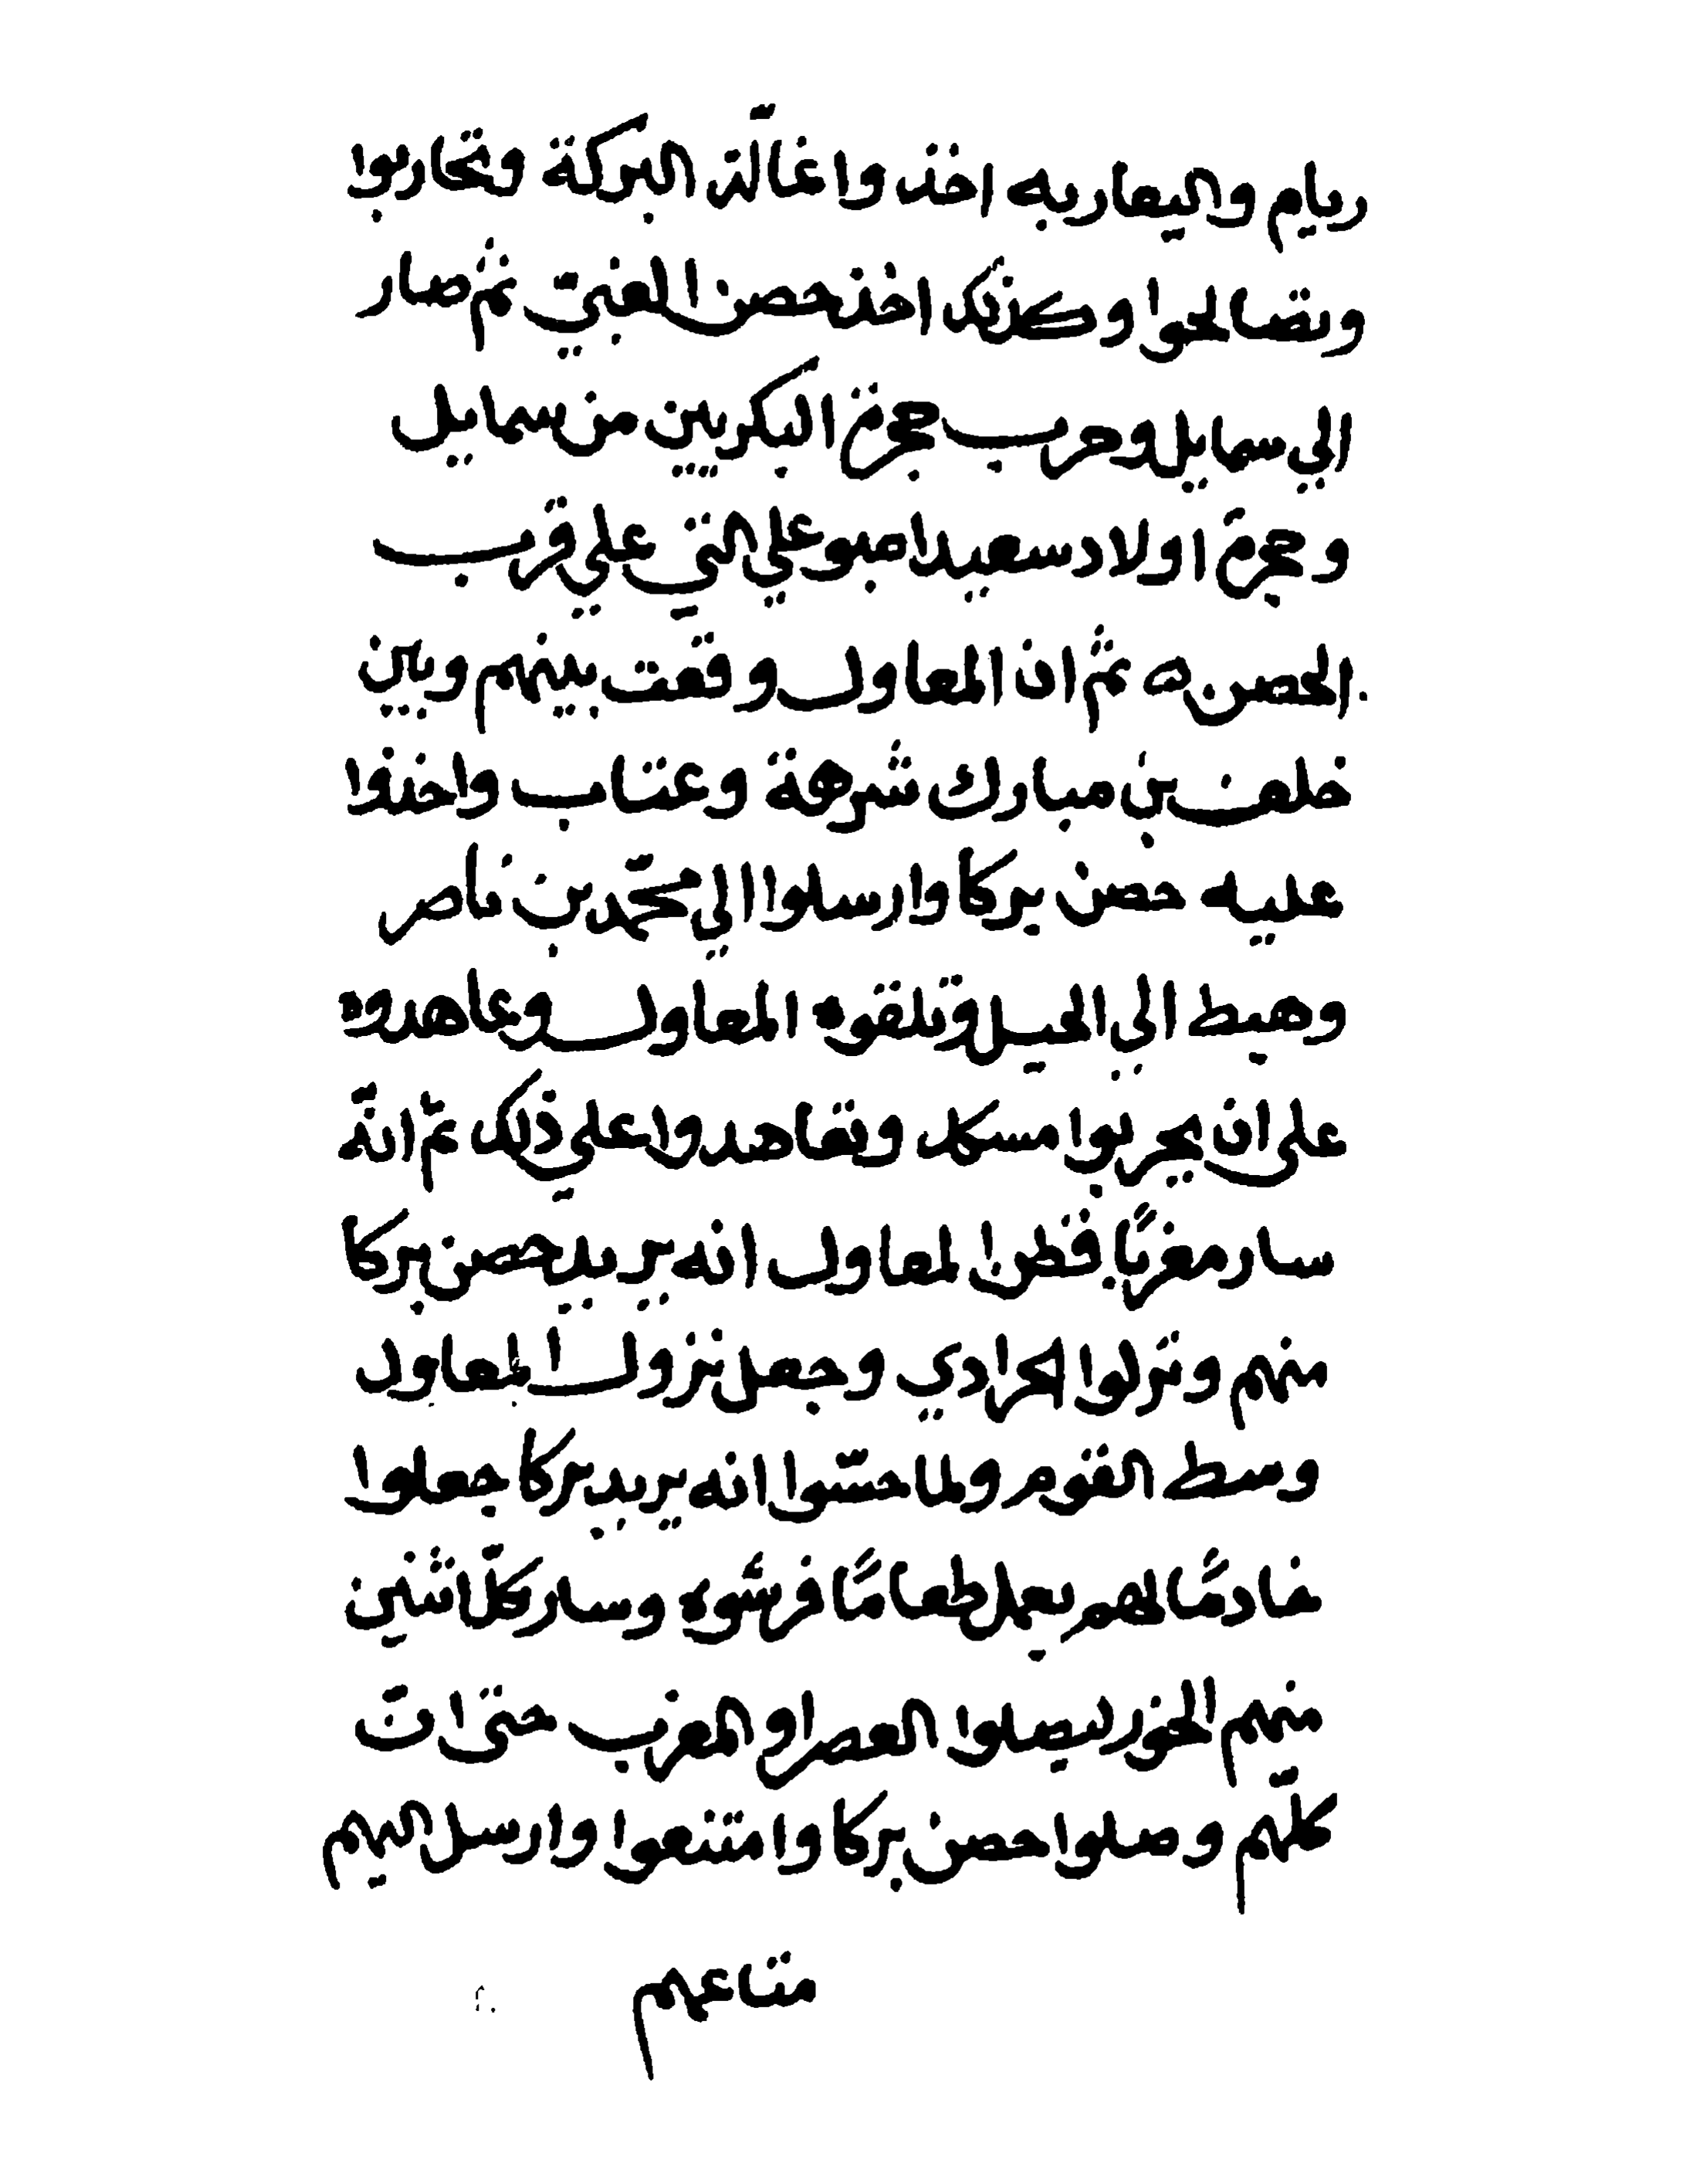 ريام واليعاربه اخذوا غالّة البركة وتحاربوا
وتصالحوا وكذلك اخذ حصن المغبيّ ثم صار
الي سمايل وحرب حجرة البكريين من سمايل
وحجرة اولاد سعيد امبو علي التي علي قرب
الحصن ثم ان المعاول وقعت بينهم وبين
خلف بن مبارك شرهة وعتاب واخذوا
عليه حصن بركا وارسلوا الي محمّد بن ناصر
وهبط الي الحيل وتلقوه المعاول وعاهدوه
على ان يحربوا مسكد وتعاهدوا علي ذلك ثم انّه
سار مغربًا فظن المعاول انه يريد حصن بركا
منهم ونزلوا الحرادي وجعل نزول المعاول
وسط القوم ولما حسّوا انه يريد بركا جعلوا
خادمًا لهم يعمل طعامًا فرشوه وسار كلّ اثنين
منهم الخور ليصلوا العصر او المغرب حتى ان
كلّهم وصلوا حصن بركا وامتنعوا وارسل اليهم
متاعهم